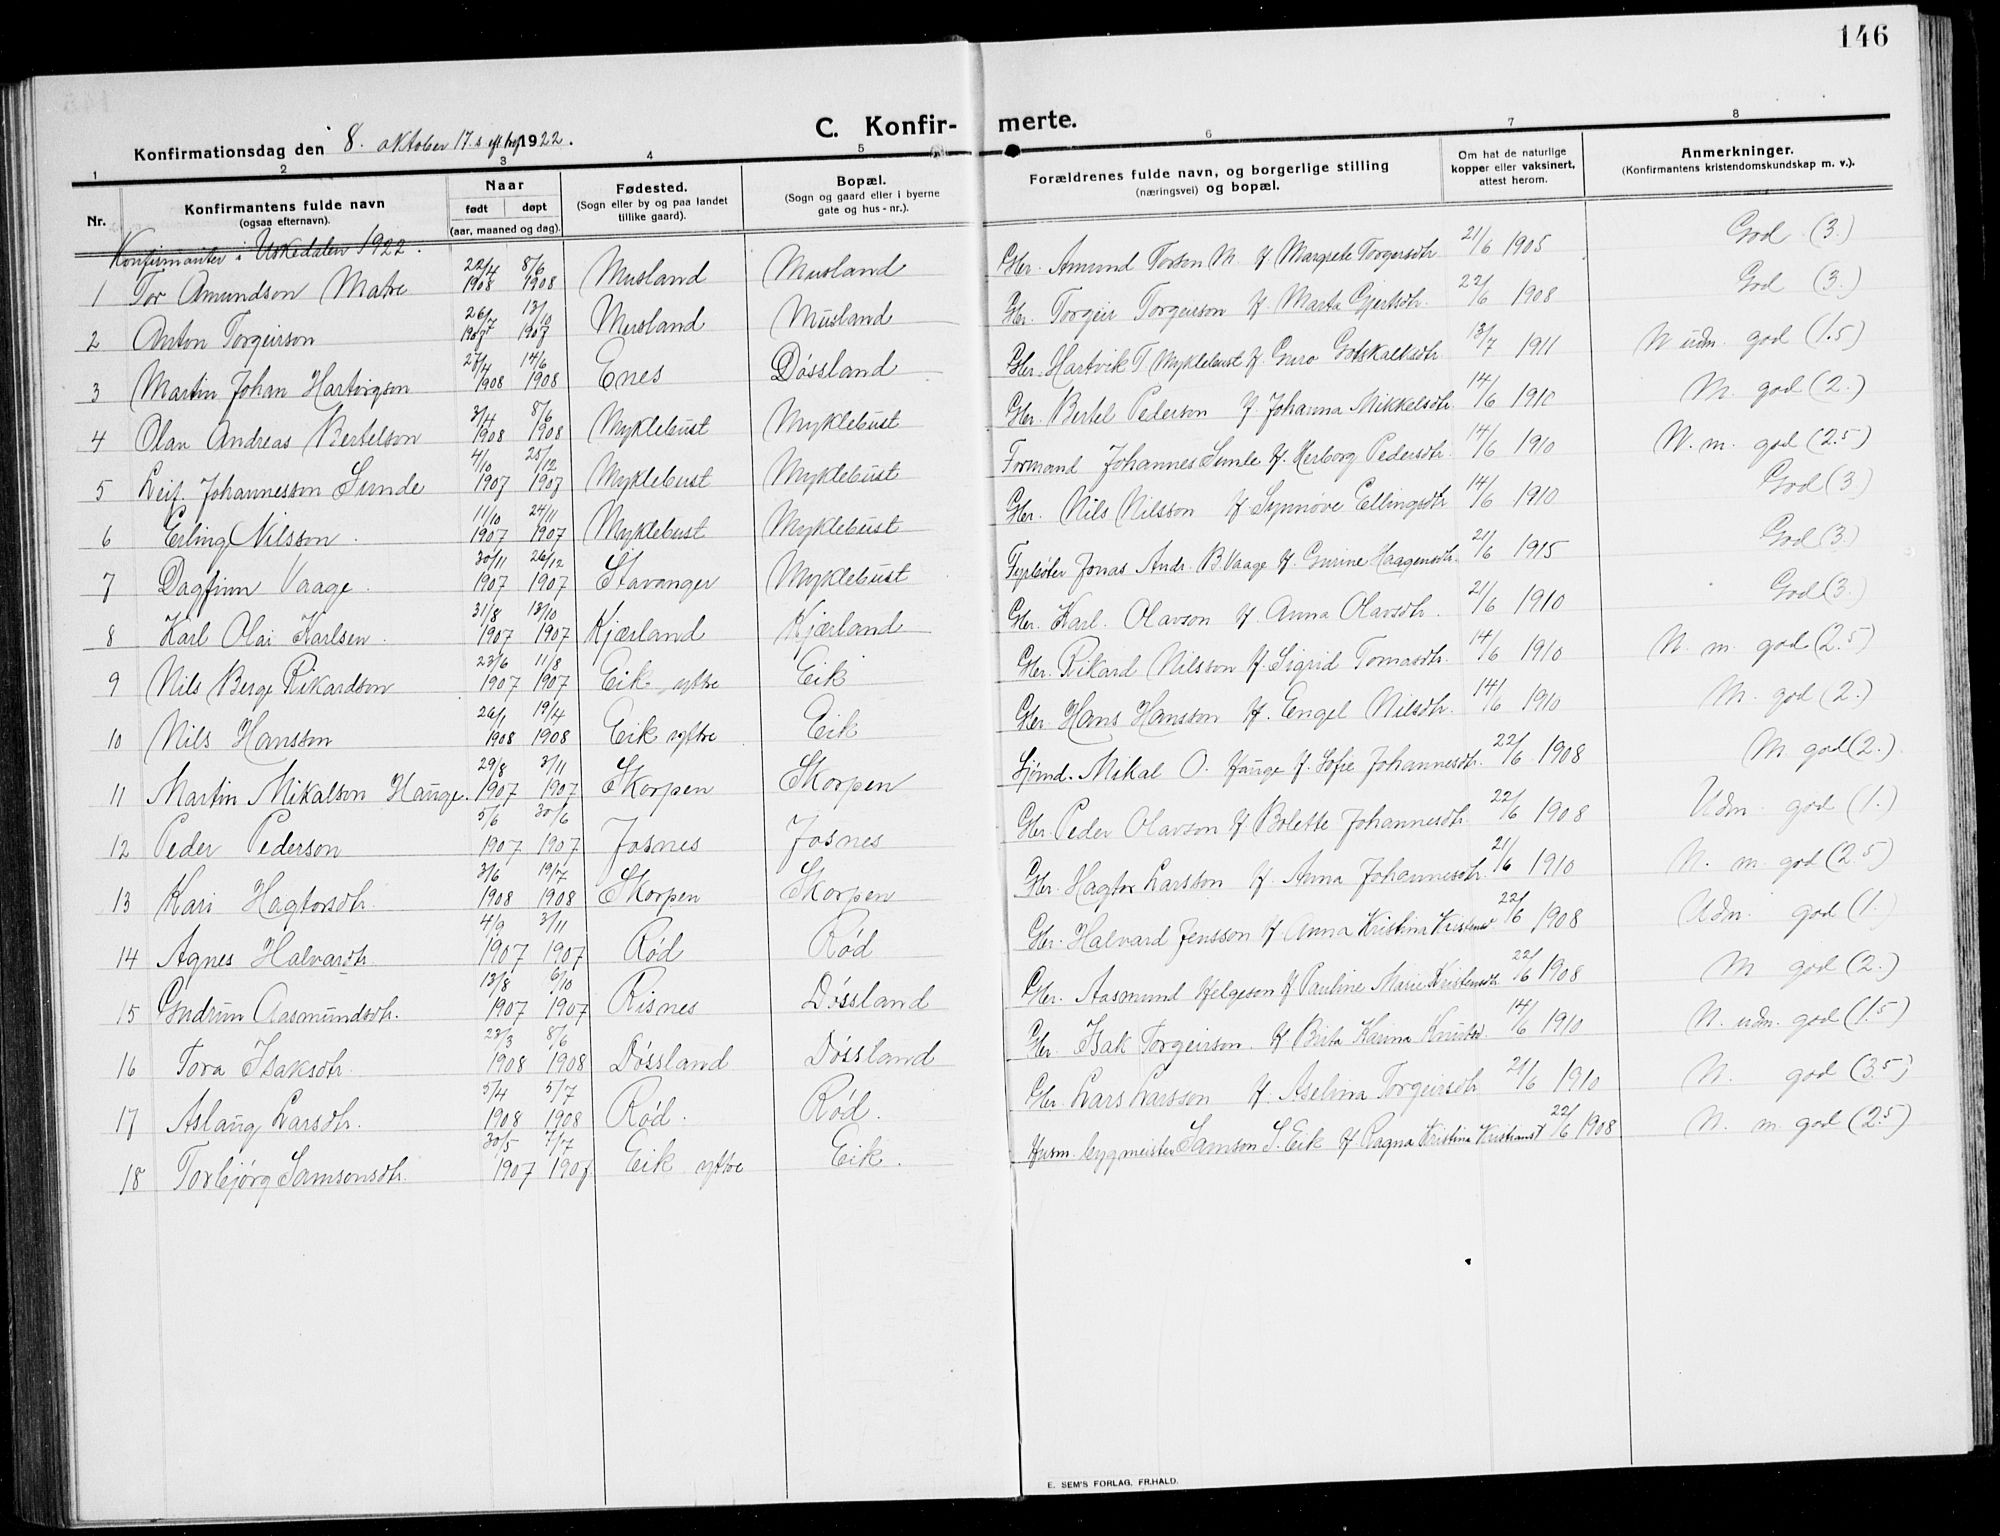 146
C. Konfirmerte.
Konfirmationsdag den 8. oktober 17. s. eft. 1922.
1 2 3 4 5 6 7 8
Nr.
Konfirmantens fulde navn (ogsaa efternavn).
Naar født døpt (aar, maaned og dag).
Fødested. (Sogn eller by og paa landet tillike gaard).
Bopæl. (Sogn og gaard eller i byerne gate og hus-nr.).
Forældrenes fulde navn, og borgerlige stilling (næringsvei) og bopæl.
Om hat de naturlige kopper eller vaksinert, attest herom.
Anmerkninger. (Konfirmantens kristendomskundskap m. v.).
Konfirmanter i Uskedalen 1922.
1 Tor Amundson Matre 22/4 1908 8/6 1908 Musland Musland Gbr. Amund Torson M. og Margrete Torgersdtr 21/6 1905 God (3.)
2 Anton Torgeirson 26/7 1907 13/10 1907 Musland Musland Gbr. Torgeir Torgeirson og Marta Gjertsdtr. 22/6 1908 God (3.)
3 Martin Johan Hartvigson 27/4 1908 14/6 1908 Enes Døssland Gbr. Hartvik T. Myklebust og Guro Gotskalksdtr 13/7 1911 N. udm. god (1.5)
4 Olav Andreas Bertelson 3/4 1908 8/6 1908 Myklebust Myklebust Gbr. Bertel Pederson og Johanna Mikkelsdtr 14/6 1910 M. god (2.)
5 Leif Johannesson Sunde 4/10 1907 25/12 1907 Myklebust Myklebust Formand Johannes Sunde og Herborg Pedersdtr. 14/6 1910 N. m. god (2.5)
6 Erling Nilsson. 11/10 1907 24/11 1907 Myklebust Myklebust Gbr. Nils Nilsson og Synnøve Ellingsdtr 14/6 1910 God (3)
7 Dagfinn Vaage. 30/11 1907 26/12 1907 Stavanger Myklebust Jonas Andr. B. Vaage og Gurine Haagensdtr. 21/6 1915 God (3.)
8 Karl Olai Karlsen. 31/8 1907 13/10 1907 Kjærland Kjærland Gbr. Karl Olavson og Anna Olavsdtr. 21/6 1910 God (3.)
9 Nils Berge Rikardson 23/6 1907 11/8 1907 Eik ytre Eik Gbr. Rikard Nilsson og Sigrid Tomasdtr. 14/6 1910 N. m. god (2.5)
10 Nils Hansson 26/1 1908 19/4 1908 Eik ytre Eik Gbr. Hans Hansson og Engel Nilsdtr. 14/6 1910 M. god (2.)
11 Martin Mikalson Hauge. 29/8 1907 3/11 1907 Skorpen Skorpen Sjømd. Mikal O. Hauge og Sofie Johannesdtr. 22/6 1908 M. god (2.)
12 Peder Pederson 5/6 1907 30/6 1907 Josnes Josnes Gbr. Peder Olavson og Bolette Johannesdtr 22/6 1908 Udm. god (1.)
13 Kari Hagtorsdtr. 3/6 1908 19/7 1908 Skorpen Skorpen Gbr. Hagtor Larsson og Anna Johannesdtr. 21/6 1910 N. m. god (2.5)
14 Agnes Halvardtr. 4/9 1907 3/11 1907 Rød Rød Gbr. Halvard Jensson og Anna Kristina Kristensd 22/6 1908 Udm. god (1.)
15 Gudrun Aasmundsdtr. 13/8 1907 6/10 1907 Risnes Døssland Gbr. Aasmund Helgeson og Pauline Marie Kristensdtr 22/6 1908 M god (2.)
16 Tora Isaksdtr. 23/3 1908 8/6 1908 Døssland Døssland Gbr. Isak Torgeirson. og Birta Karina Knutsd. 14/6 1910 N. udm. god (1.5)
17 Aslaug Larsdtr. 5/4 1908 5/7 1908 Rød. Rød. Gbr. Lars Larsson og Aselina Torgeirsdtr 21/6 1910 N. god (3.5)
18 Torbjørg Samsonsdtr. 30/5 1907 7/7 1907. Eik ytre Eik. Husm. bygmeister Samson S. Eik og Ragna Kristina Kristiansd 22/6 1908 N. m. god (2.5)
E. SEM'S FORLAG, FR.HALD.